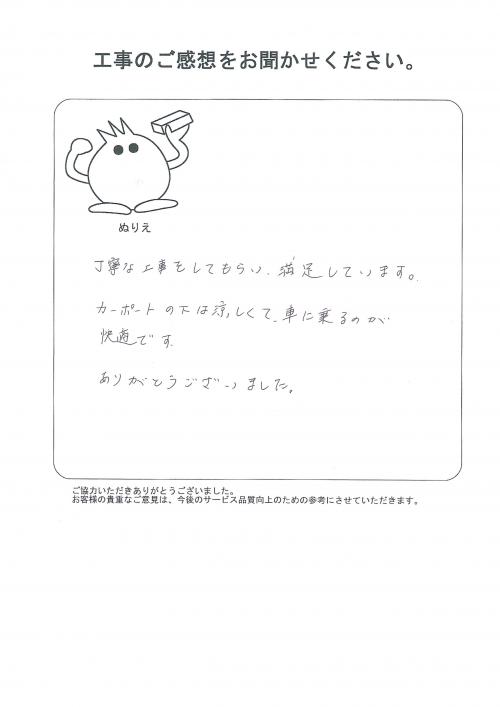 工事のご感想をお聞かせください。
ぬりえ
丁寧な工事をしてもらい、満足しています。
カーポートの下は涼しくて、車に乗るのが
快適です。
ありがとうございました。
ご協力いただきありがとうございました。
お客様の貴重なご意見は、今後のサービス品質向上のための参考にさせていただきます。